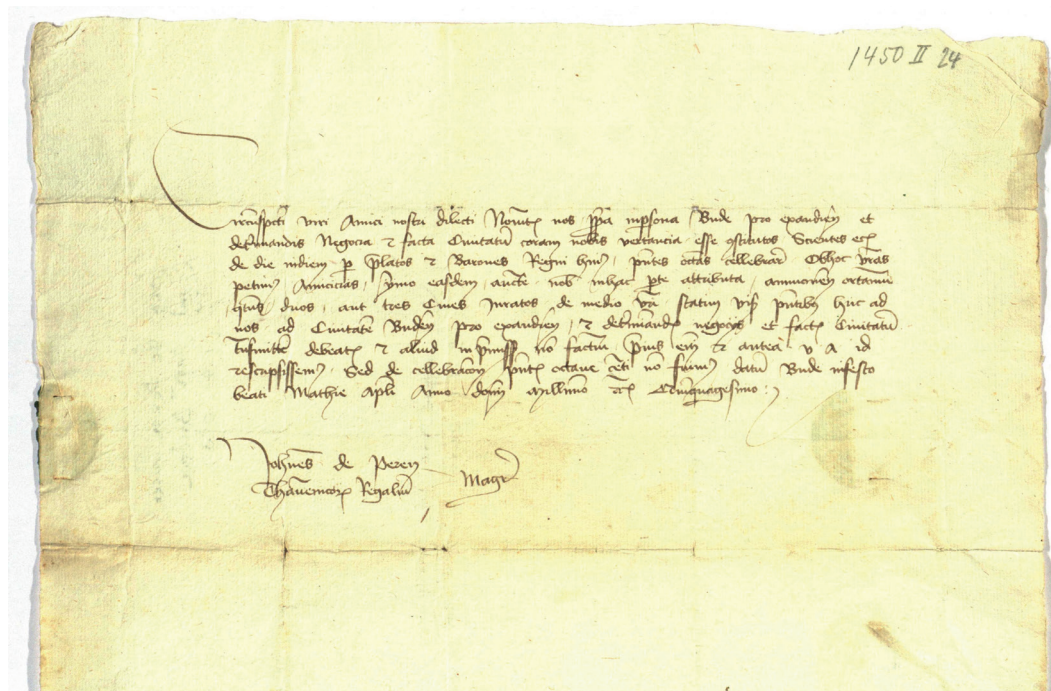 1450 II 24
Circumspecti viri Amici nostri dilecti Noveritis nos propria in persona Bude pro exaudiendis et
determinandis Negocia et facta Civitatum coram nobis vertancia esse constitutos Scientes eciam
de die in diem per prelatos et Barones Regni huius, presentes octavas cellebrari Obhoc vestras
petimus Amicicias, ymo easdem, auctoritate nobis in hac parte attributa, ammonemus
duos, aut tres Cives Juratos, de medio vestri, statim visis presentibus huc ad
nos ad Civitatem Budensem pro exaudiendis, et determinandis negociis et factis Civitatum
transmittere debeatis et aliud in premissis non facturi prius enim et antea v a id
rescripsissemus, Sed de cellebracione presentis octave certi non fuimus datum Bude in festo
beati Mathie Apli Anno domini Millesimo Quinquagesimo
Johannes de Peren
Thavernicorum Regalium Magister